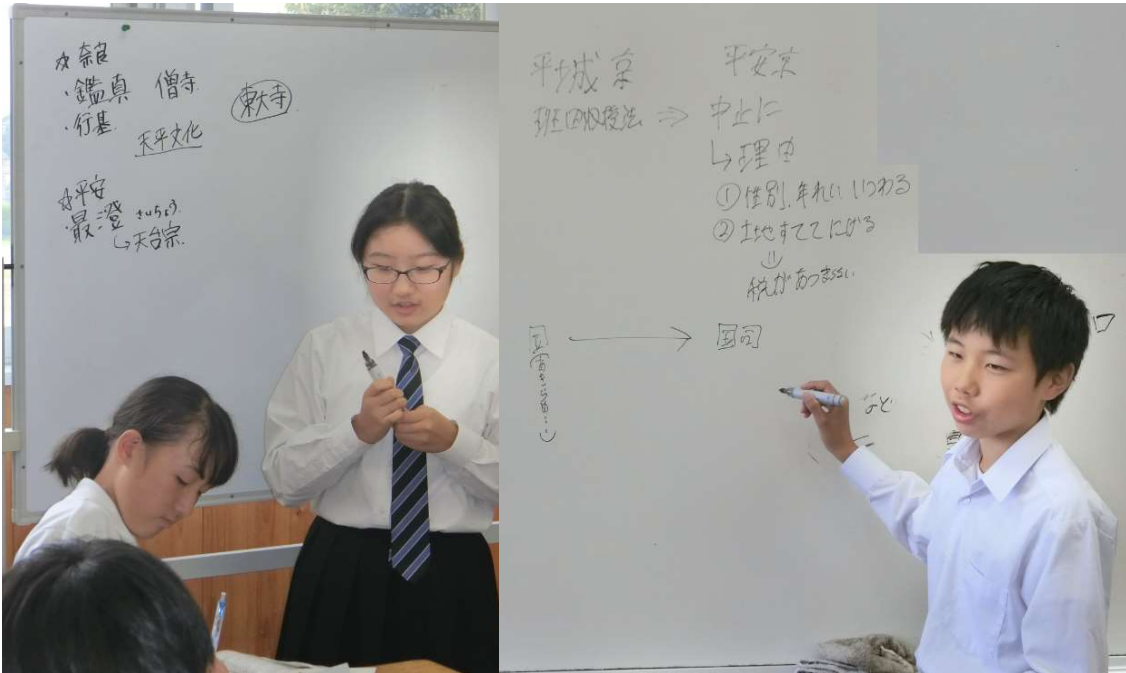 ☆奈良
・鑑真 僧寺
・行基
東大寺
天平文化
☆平安
・最澄 さいちょう
↳天台宗
平城京
班田収授法 ⇒
平安京
中止に
↳理由
①性別、年れい いつわる
②土地すててにげる
税があつまらない
国司
など